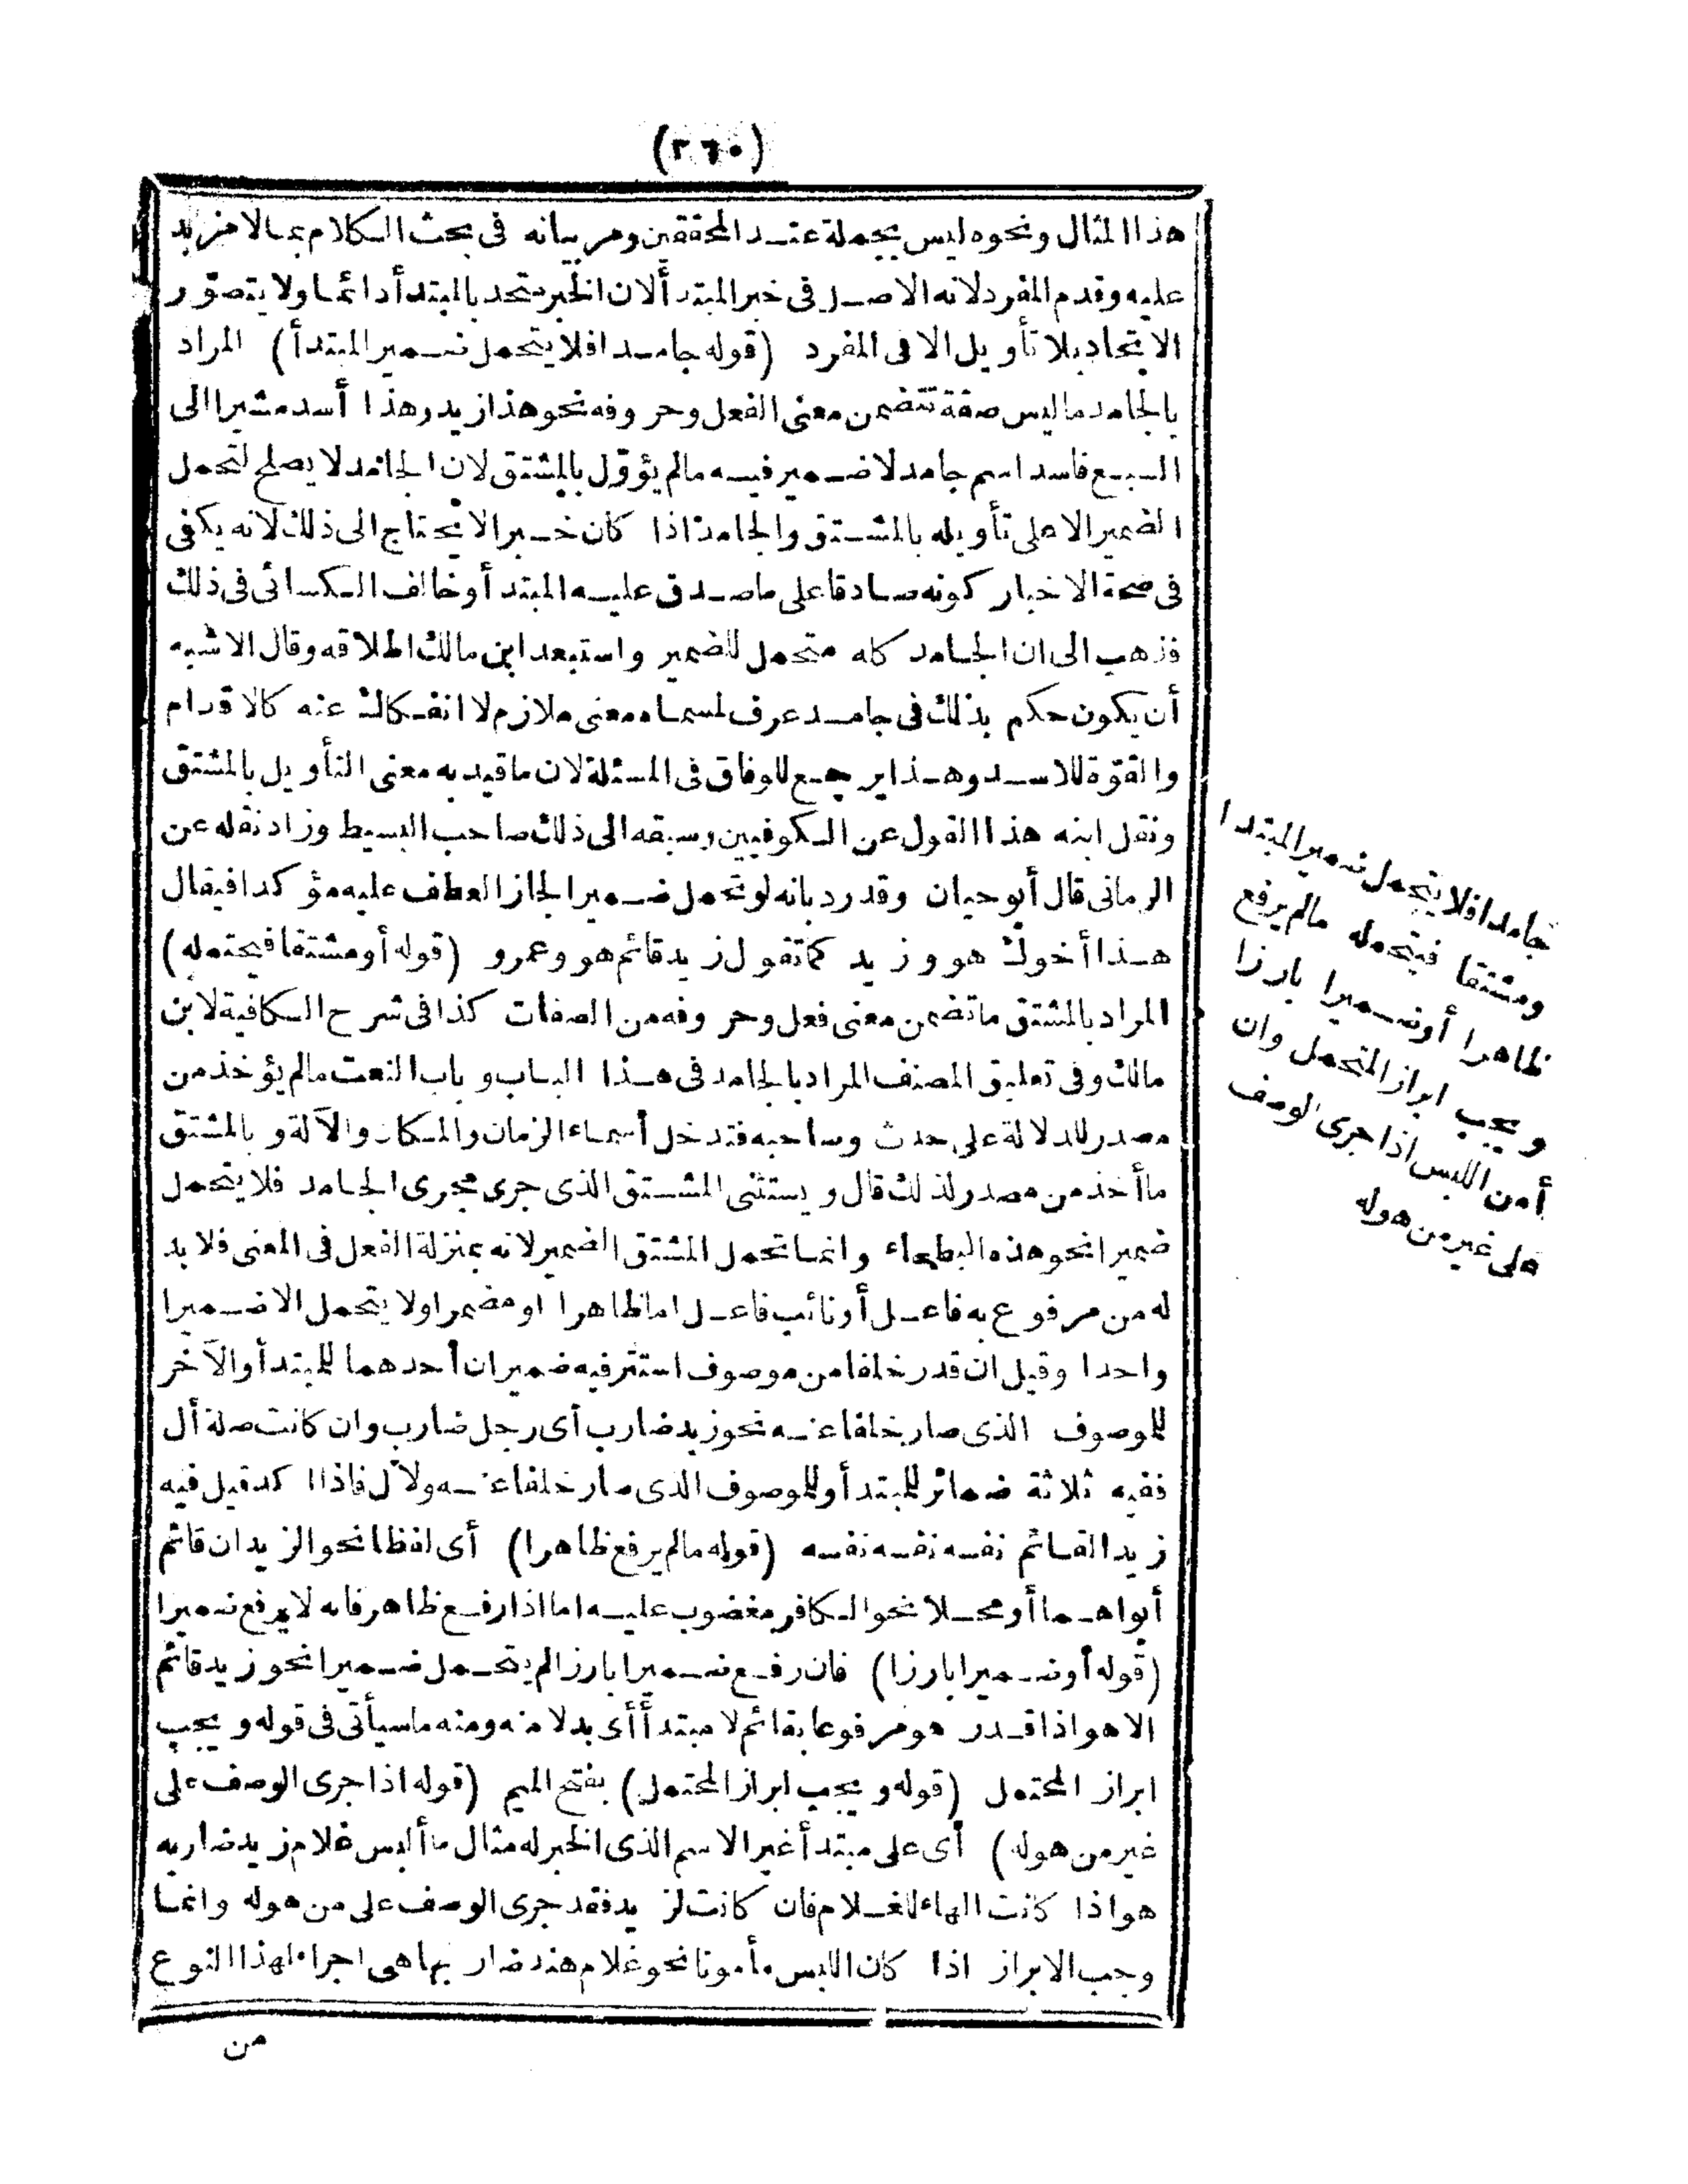 (٢٦٠)
هذا المثال ونحوه ليس بجملة عند المحققين ومر بيانه فى بحث الكلام بما لا مزيد
عليه وقدم المفرد لانه الاصل فى خبر المبتدأ لان الخبر متحد بالمبتدأ دائما ولا يتصوّر
الاتحاد بلا تأويل الا فى المفرد (قوله جامدا فلا يتحمل ضمير المبتدأ) المراد
بالجامد ما ليس صفة تتضمن معنى الفعل وحروفه نحو هذا زيد وهذا أسد مشيرا الى
السبع فاسد اسم جامد لا ضمير فيه ما لم يؤوّل بالمشتق لان الجامد لا يصلح لتحمل
الضمير الا على تأويله بالمشتق والجامد اذا كان خبرا لا يحتاج الى ذلك لانه يكفى
فى صحة الاخبار كونه صادقا على ما صدق عليه المبتدأ وخالف الكسائى فى ذلك
فذهب الى ان الجامد كله متحمل للضمير واستبعد ابن مالك اطلاقه وقال الاشبه
أن يكون حكم بذلك فى جامد عرف لمسماه معنى ملازم لا انفكاك عنه كالاقدام
والقوّة للاسد وهذا يرجع للوفاق فى المسئلة لان ما قيد به معنى التأويل بالمشتق
ونقل ابنه هذا القول عن الكوفيين وسبقه الى ذلك صاحب البسيط وزاد نقله عن
الرمانى قال أبو حيان وقد رد بانه لو تحمل ضميرا لجاز العطف عليه مؤكدا فيقال
هذا أخوك هو وزيد كما تقول زيد قائم هو وعمرو (قوله أو مشتقا فيحتمله)
المراد بالمشتق ما تضمن معنى فعل وحروفه من الصفات كذا فى شرح الكافية لابن
مالك وفى تعليق المصنف المراد بالجامد فى هذا الباب وباب النعت ما لم يؤخذ من
مصدر للدلالة على حدث وصاحبه فتدخل أسماء الزمان والمكان والآلة وبالمشتق
ما أخذ من مصدر لذلك قال ويستثنى المشتق الذى جرى مجرى الجامد فلا يتحمل
ضميرا نحو هذه البطحاء وانما تحمل المشتق الضمير لانه بمنزلة الفعل فى المعنى فلا بد
له من مرفوع به فاعل أو نائب فاعل اما ظاهرا او مضمرا ولا يتحمل الا ضميرا
واحدا وقيل ان قدر خلفا من موصوف استتر فيه ضميران أحدهما للمبتدأ والآخر
للموصوف الذى صار خلفا عنه نحو زيد ضارب أى رجل ضارب وان كانت صلة أل
ففيه ثلاثة ضمائر للمبتدأ وللموصوف الذى صار خلفا عنه ولأل فاذا اكد قيل فيه
زيد القائم نفسه نفسه نفسه (قوله ما لم يرفع ظاهرا) أى لفظا نحو الزيدان قائم
أبواهما أو محلا نحو الكافر مغضوب عليه اما اذا رفع ظاهر فانه لا يرفع ضميرا
(قوله أو ضميرا بارزا) فان رفع ضميرا بارزا لم يتحمل ضميرا نحو زيد قائم
الا هو اذا قدر هو مرفوعا بقائم لا مبتدأ أى بدلا منه ومنه ما سيأتى فى قوله ويجب
ابراز المحتمل (قوله ويجب ابراز المحتمل) بفتح الميم (قوله اذا جرى الوصف على
غير من هو له) أى على مبتدأ غير الاسم الذى الخبر له مثال ما ألبس غلام زيد ضاربه
هو اذا كانت الهاء للغلام فان كانت لزيد فقد جرى الوصف على من هو له وانما
وجب الابراز اذا كان اللبس مأمونا نحو غلام هند ضاربها هى اجراء لهذا النوع
من
جامدا فلا يتحمل ضمير المبتدا
ومشتقا فيتحمله ما لم يرفع
ظاهرا أو ضميرا بارزا
ويجب ابراز المتحمل وان
أمن اللبس اذا جرى الوصف
على غير من هو له